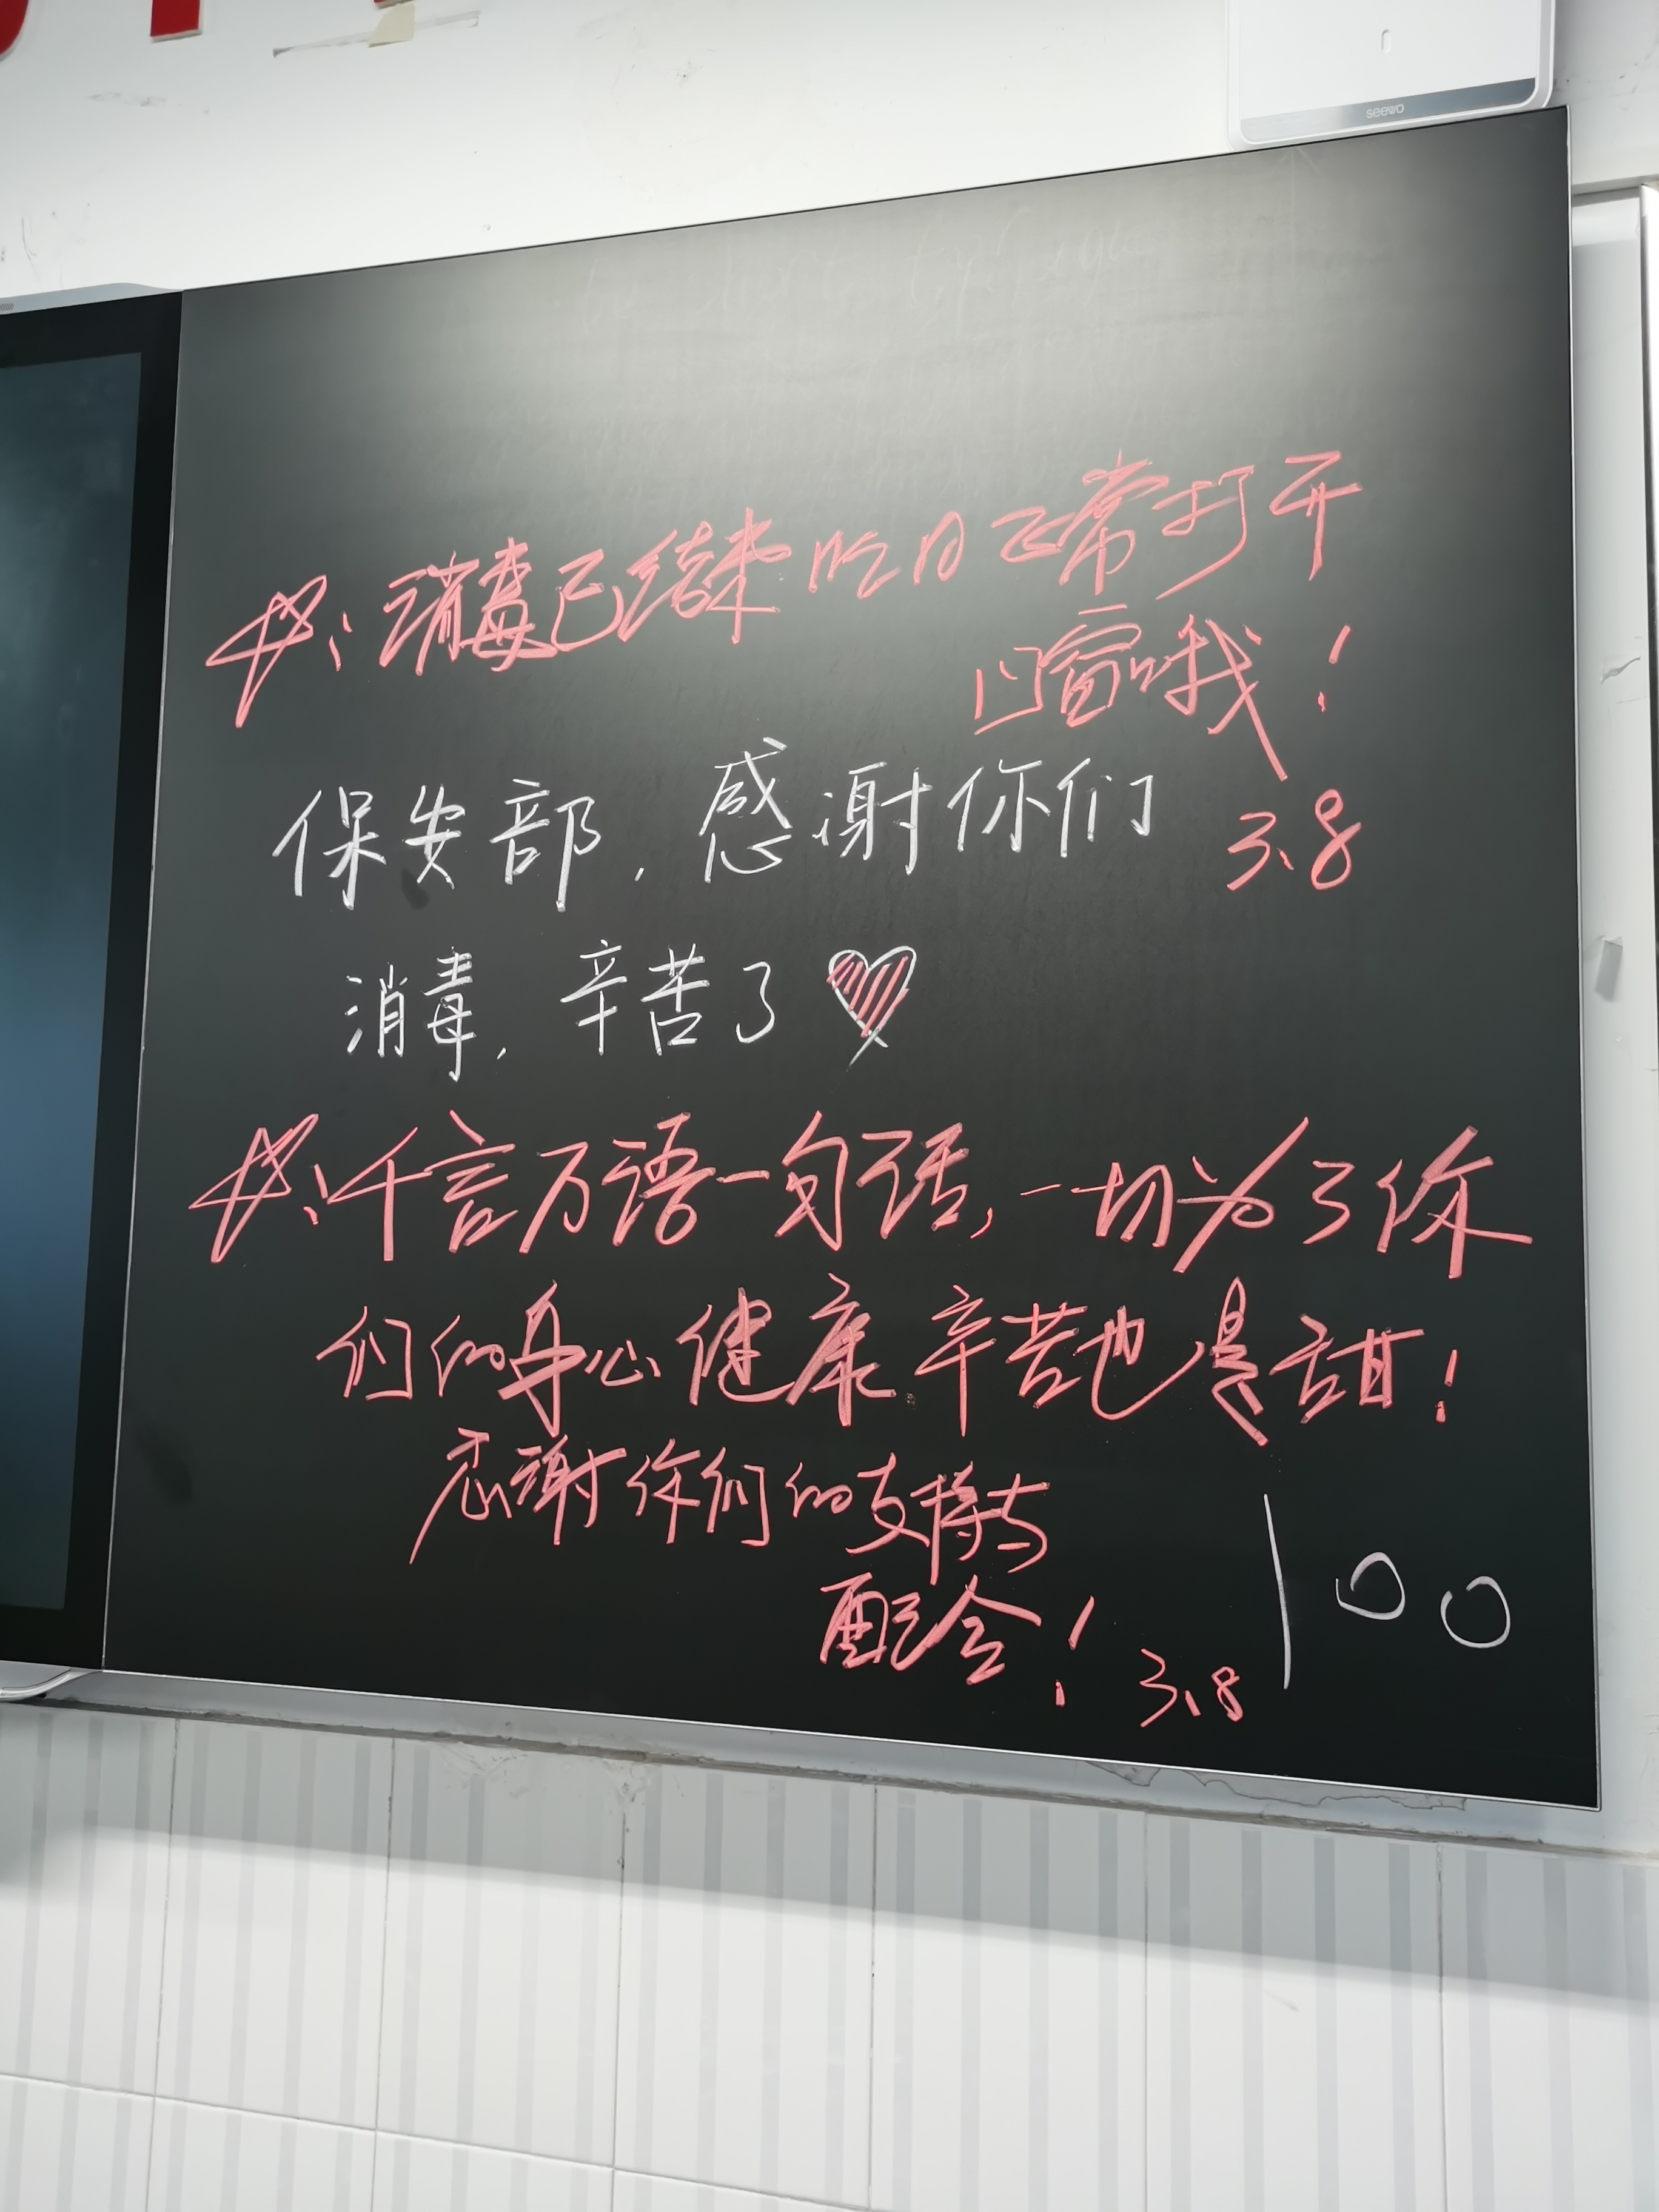 seewo
消毒已结束 次日正常打开
门窗哦！
3.8
保安部，感谢你们
消毒，辛苦了
千言万语一句话，一切为了你
们的身心健康.辛苦也是甜！
感谢你们的支持与
配合！
3.8
100